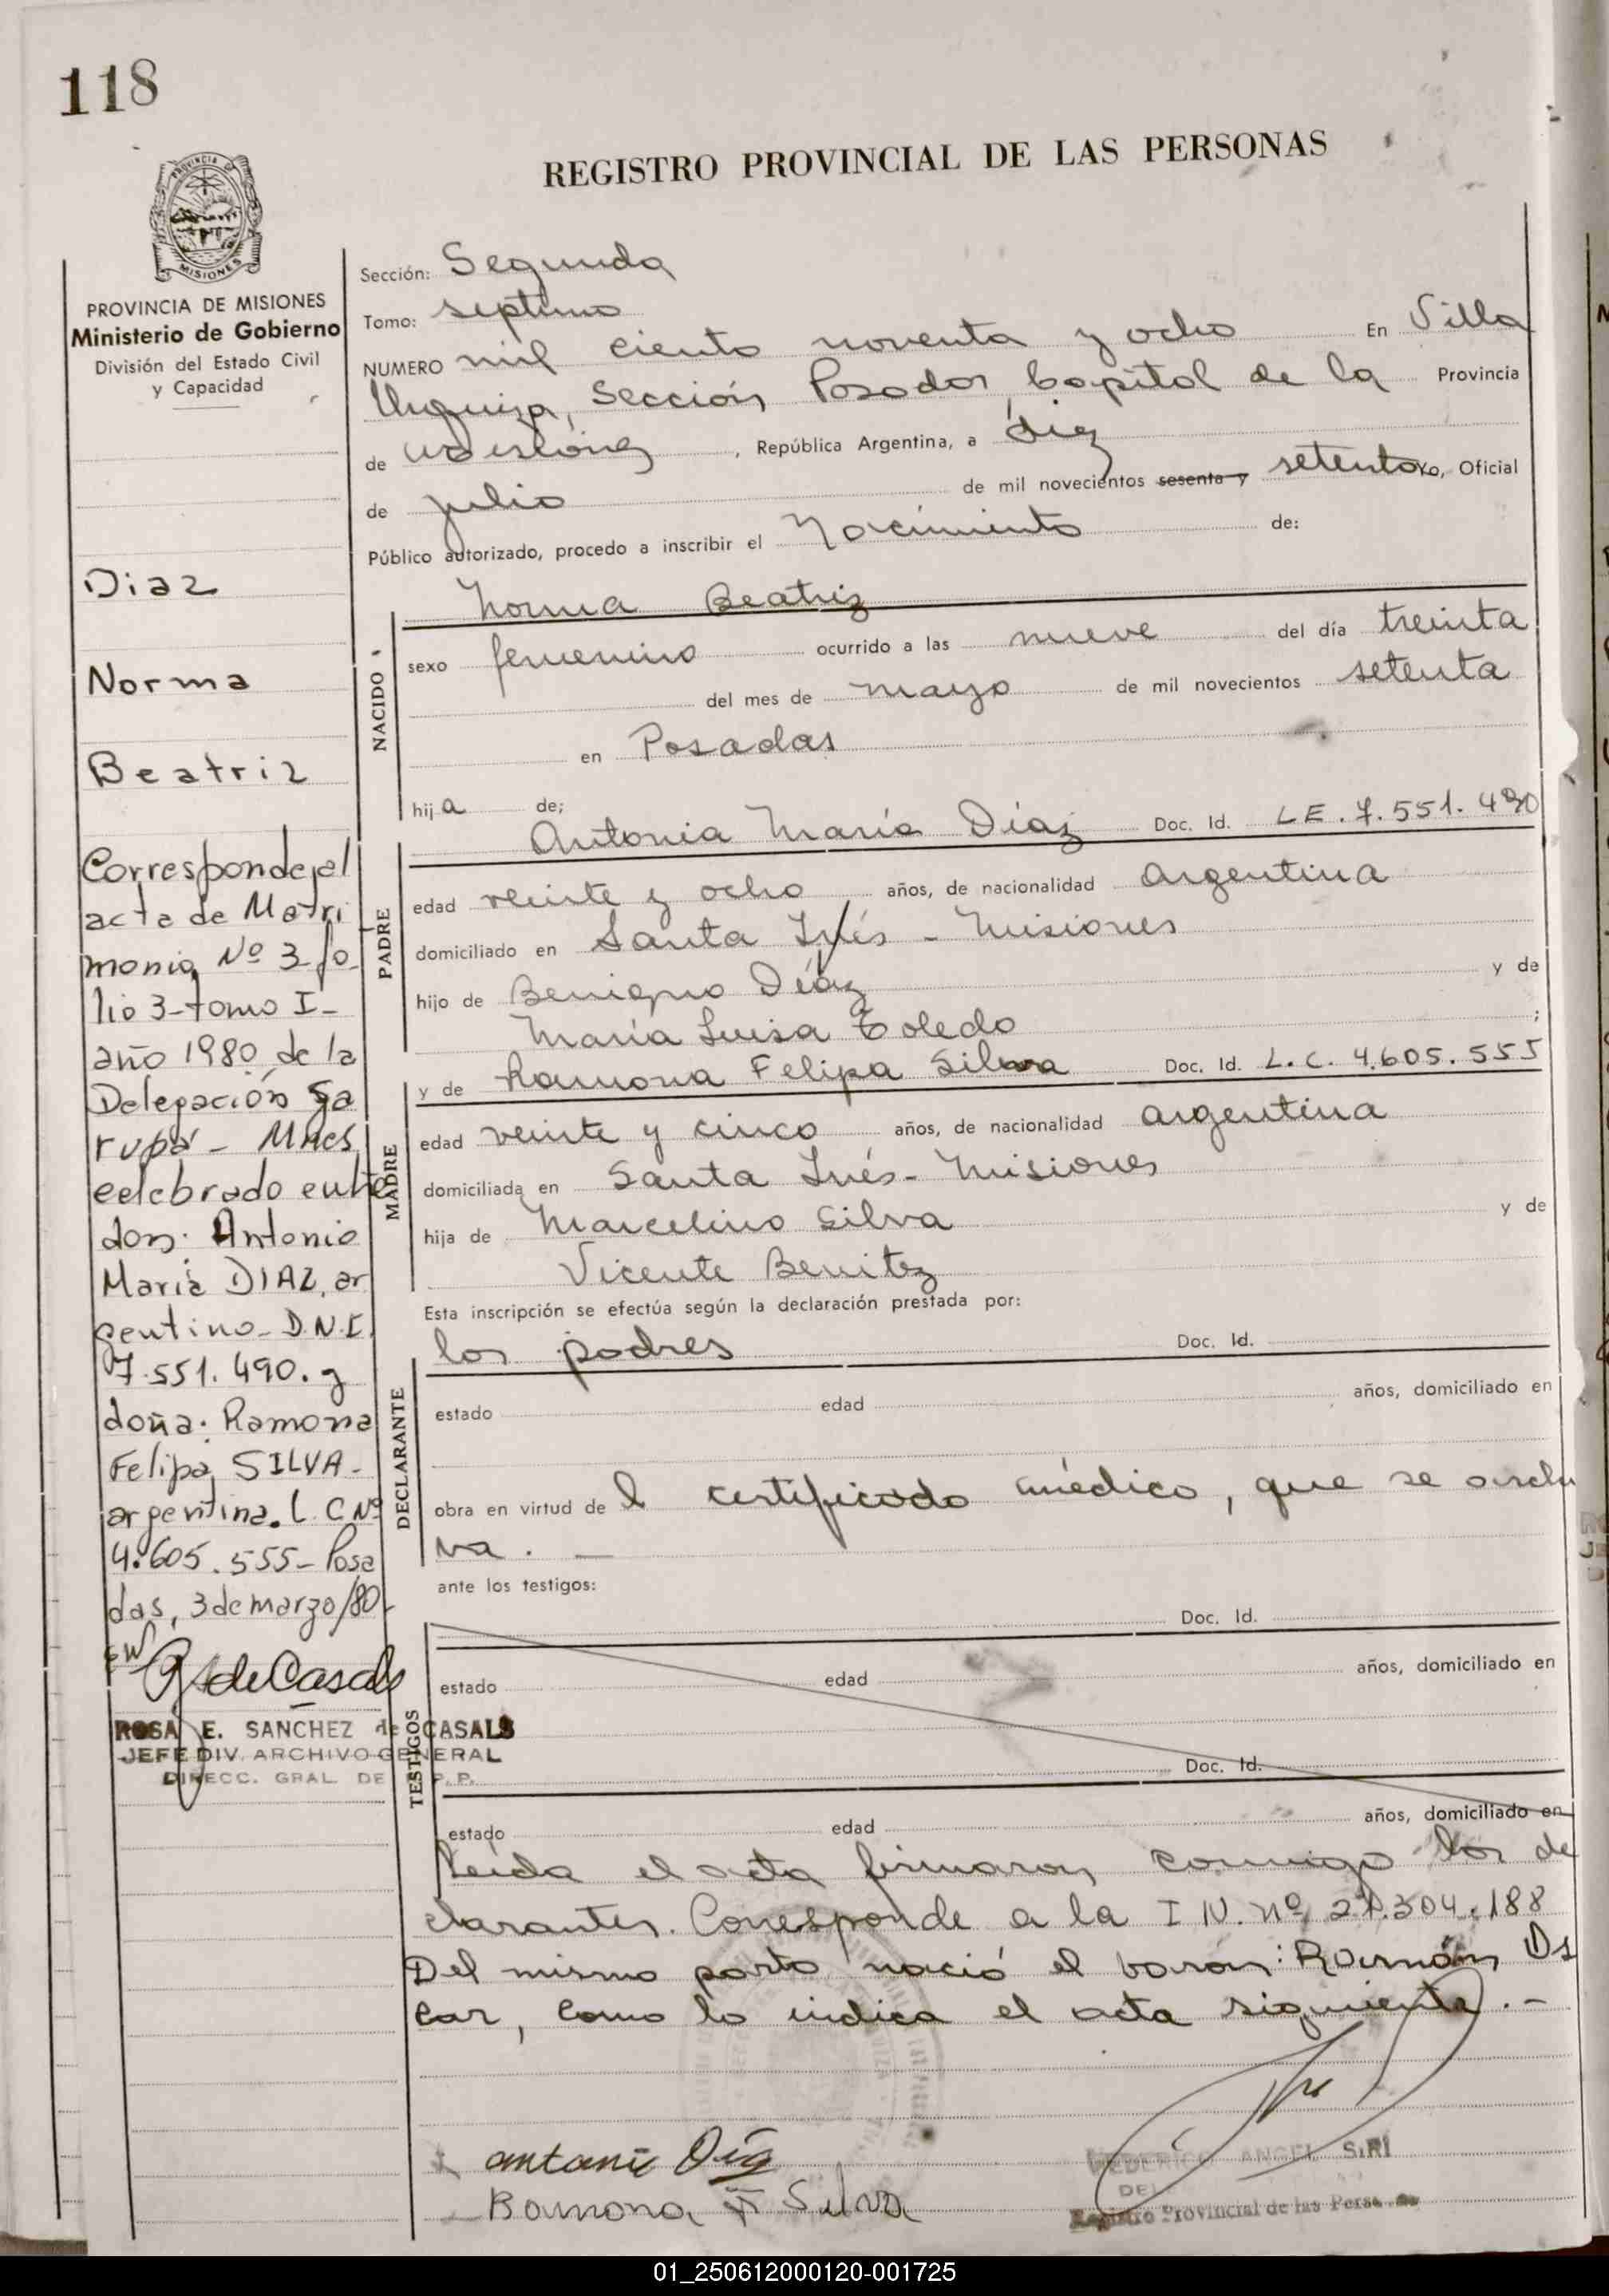 118
REGISTRO PROVINCIAL DE LAS PERSONAS
PROVINCIA DE MISIONES
Ministerio de Gobierno
División del Estado Civil
y Capacidad
Diaz
Norma
Beatriz
Corresponde al
acta de Matri
monio Nº 3 fo
lio 3-tomo I-
año 1980 de la
Delegación Ga
rupá - Mnes
celebrado entre
don: Antonio
María DIAZ, ar
gentino - D.N.I.
7.551.490. y
doña: Ramona
Felipa SILVA -
argentina. L.C Nº
4.605.555 - Posa
das, 3 de marzo/80
ROSA E. SANCHEZ de CASALS
JEFE DIV. ARCHIVO GENERAL
DIRECC. GRAL. DE P.P.
Sección: Segunda
Tomo: septimo
NUMERO mil ciento noventa y ocho En Villa
Urquiza, Sección Posadas Capital de la Provincia
de Misiones, República Argentina, a diez
de julio de mil novecientos sesenta y setenta yo, Oficial
Público autorizado, procedo a inscribir el Nacimiento de:
NACIDO
Norma Beatriz
sexo femenino ocurrido a las nueve del día treinta
del mes de mayo de mil novecientos setenta
en Posadas
hija de;
PADRE
Antonia María Díaz Doc. Id. LE. 7.551.490
edad veinte y ocho años, de nacionalidad argentina
domiciliado en Santa Inés - Misiones
hijo de Benigno Díaz y de
María Luisa Toledo ;
MADRE
y de Ramona Felipa Silva Doc. Id. L.C. 4.605.555
edad veinte y cinco años, de nacionalidad argentina
domiciliada en Santa Inés - Misiones
hija de Marcelino Silva y de
Vicente Benitez
Esta inscripción se efectúa según la declaración prestada por:
DECLARANTE
los padres Doc. Id.
estado edad años, domiciliado en
obra en virtud del certificado médico, que se archi
va. —
ante los testigos:
TESTIGOS
Doc. Id.
estado edad años, domiciliado en
Doc. Id.
estado edad años, domiciliado en
Leída el acta firmaron conmigo los de
clarantes. Corresponde a la I N. nº 21.304.188
Del mismo parto nació el varón: Ramón Os
car, como lo indica el acta siguiente. -
antonio Díaz
Ramona F Silva
FEDERICO ANGEL SIRI
Registro Provincial de las Personas
01_250612000120-001725